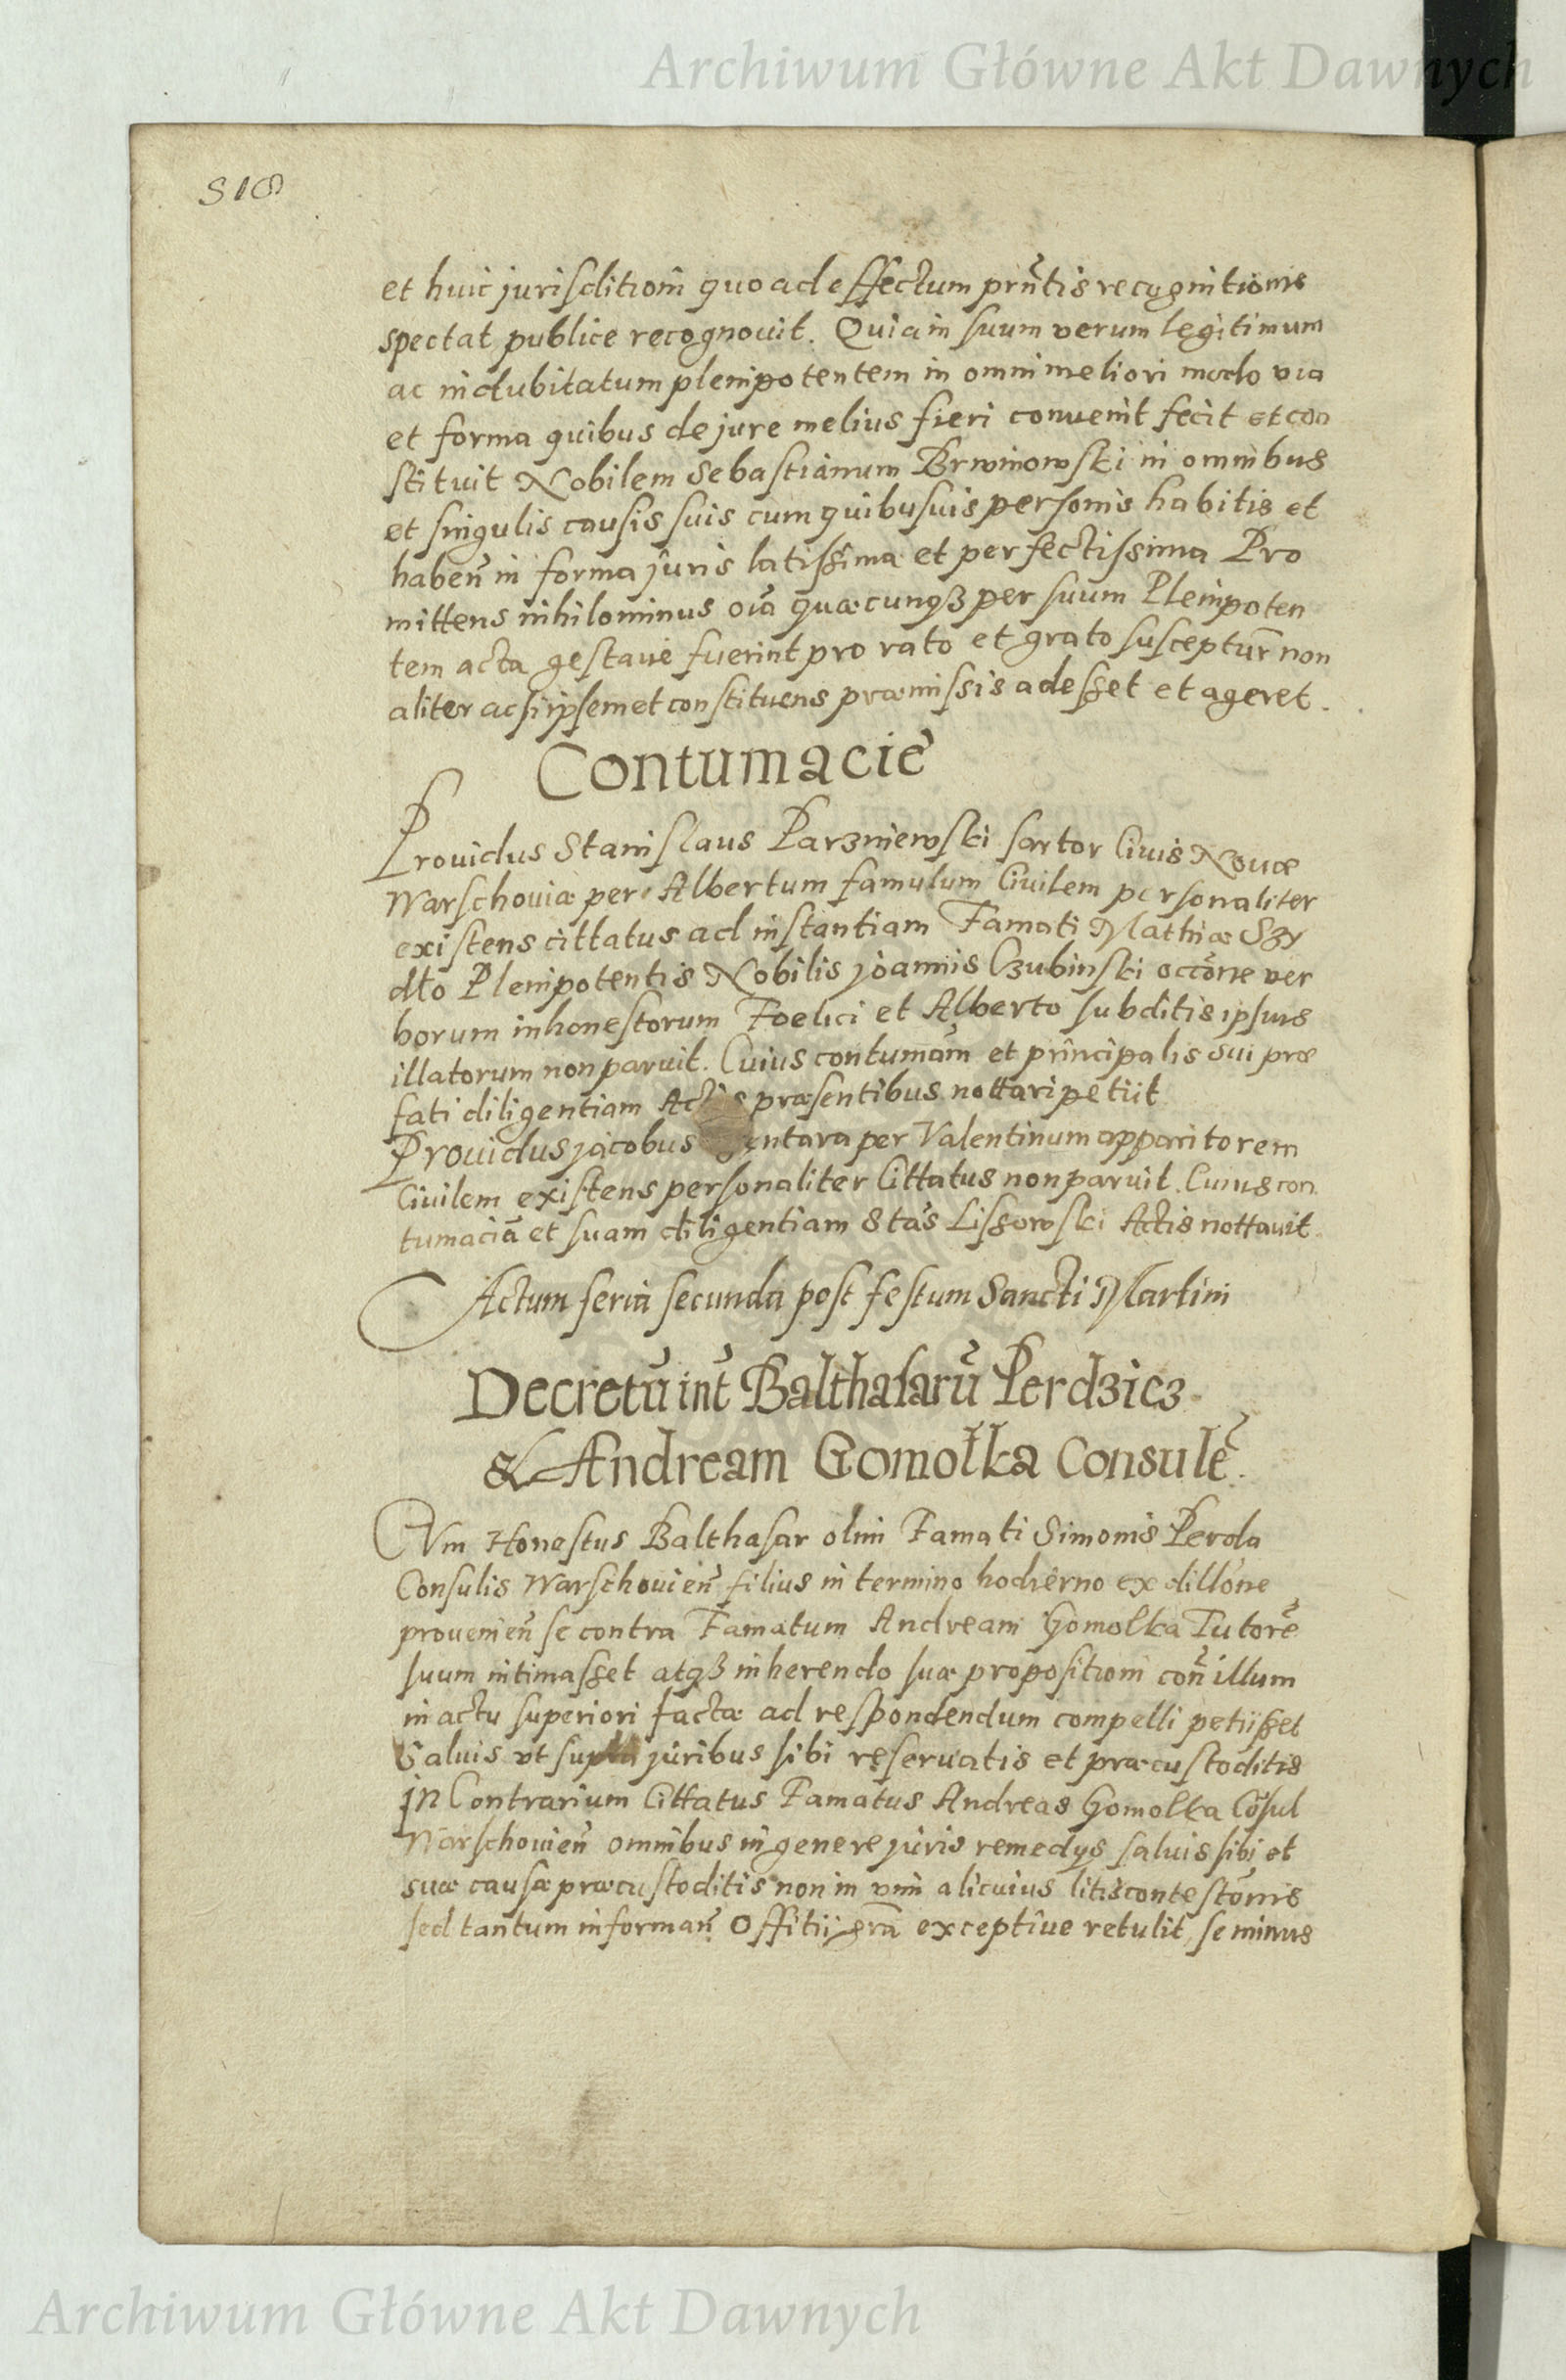 Archiwum Główne Akt Dawnych
518
et huic jurisditioni quo ad effectum prñtis recognitionis
spectat publice recognouit. Quia in suum verum legitimum
ac indubitatum plenipotentem in omni meliori modo via
et forma quibus de jure melius fieri conuenit fecit et con
stituit Nobilem Sebastianum Brwinowski in omnibus
et singulis causis suis cum quibusuis personis habitis et
habeñ in forma juris latissima et perfectissima Pro
mittens nihilominus oĩa quæcunqȝ per suum Plenipoten
tem acta gestaue fuerint pro rato et grato susceptur̃ non
aliter ac si ipsemet constituens præmissis adesset et ageret.
Contumacie
Prouidus Stanislaus Parzniewski sartor Ciuis Nouæ
Warschouiæ per Albertum famulum Ciuilem personaliter
existens cittatus ad instantiam Famati Mathiæ Szy
dło Plenipotentis Nobilis joannis Czubinski occõne ver
borum inhonestorum Foelici et Alberto subditis ipsius
illatorum non paruit. Cuius contumãm et principalis sui præ
fati diligentiam Actis præsentibus nottari petiit
Prouidus jacobus entara per Valentinum apparitorem
Ciuilem existens personaliter Cittatus non paruit. Cuius con
tumaciã et suam diligentiam Stãs Lissowski Actis nottauit.
Actum feria secunda post festum Sancti Martini
Decretũ int̃ Balthasarũ Perdzicz
& Andream Gomołka Consulẽ.
Cvm Honestus Balthasar olim Famati Simonis Perda
Consulis Warschouieñ filius in termino hodierno ex dillõne
prouenieñ se contra Famatum Andream Gomolka Tutorẽ
suum intimasset atqȝ inherendo suæ propositioni coñ illum
in actu superiori factæ ad respondendum compelli petiisset
Saluis vt supra juribus sibi reseruatis et præcustoditis
jn Contrarium Cittatus Famatus Andreas Gomolka Cõsul
Warschouieñ omnibus in genere juris remedys saluis sibi et
suæ causæ præcustoditis non in vim alicuius litis contestõnis
sed tantum informañ Offitii grã exceptiue retulit, se minus
Archiwum Główne Akt Dawnych